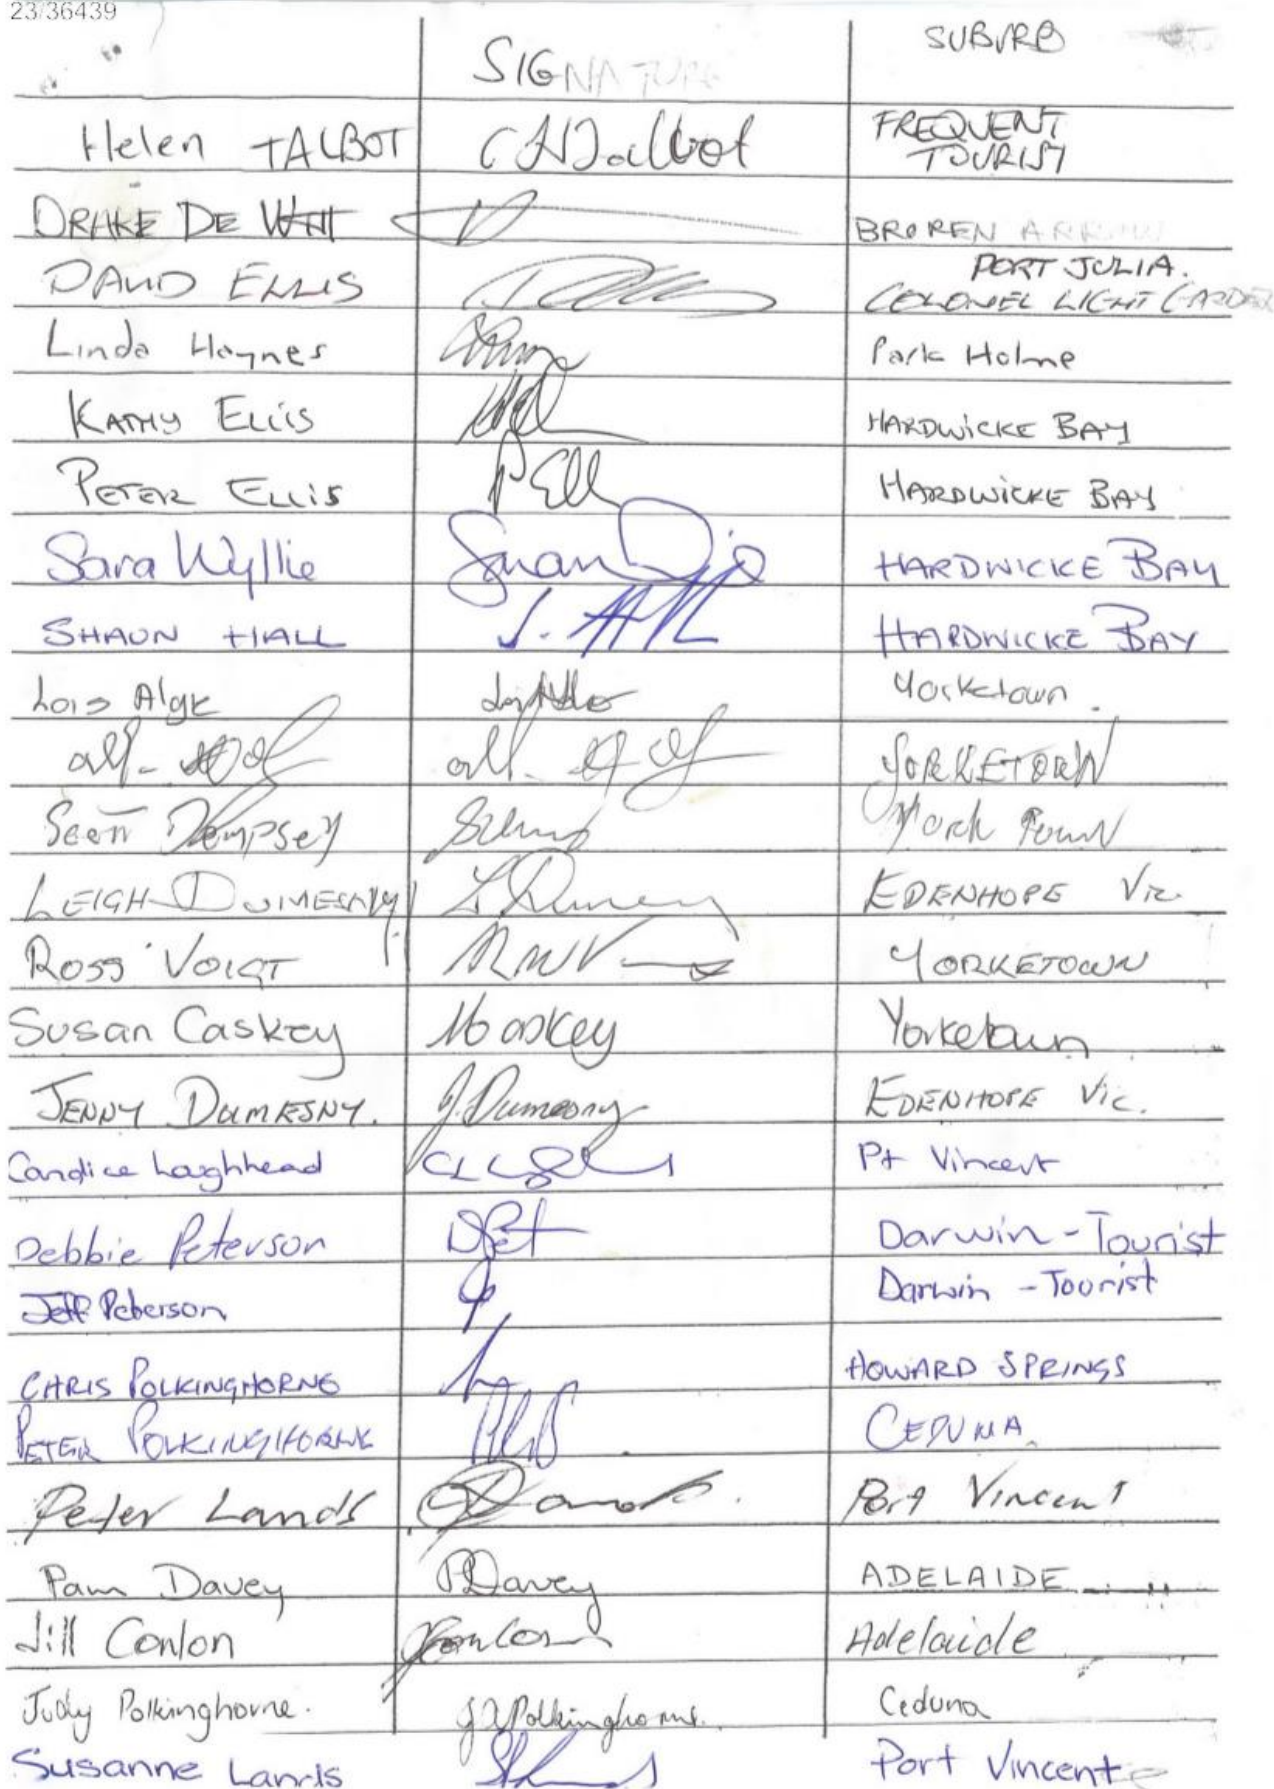 23/36439
SIGNATURE SUBURB
Helen TALBOT CHTalbot FREQUENT
TOURIST
DRAKE DE WITT BROKEN ARROW
DAVID ELLIS PORT JULIA.
COLONEL LIGHT GARDEN
Linda Haynes Park Holme
KATHY ELLIS HARDWICKE BAY
PETER ELLIS P Ell HARDWICKE BAY
Sara Wyllie HARDWICKE BAY
SHAUN HALL S. HALL HARDWICKE BAY
Lois Algk Yorketown.
YORKETOWN
Scott Dempsey York Town
LEIGH DUMESNY L Dumesny EDENHOPE VIC
ROSS VOIGT YORKETOWN
Susan Caskey Caskey Yorketown
JENNY DUMESNY. J. Dumesny EDENHOPE VIC.
Candice Loughhead Pt Vincent
Debbie Peterson DPet Darwin - Tourist
Jeff Peterson Darwin - Tourist
CHRIS POLKINGHORNE HOWARD SPRINGS
PETER POLKINGHORNE CEDUNA.
Peter Lands Port Vincent
Pam Davey PDavey ADELAIDE
Jill Conlon Adelaide
Judy Polkinghorne. Polkinghorne. Ceduna
Susanne Lands Port Vincent